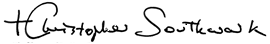 +Christopher Southwark